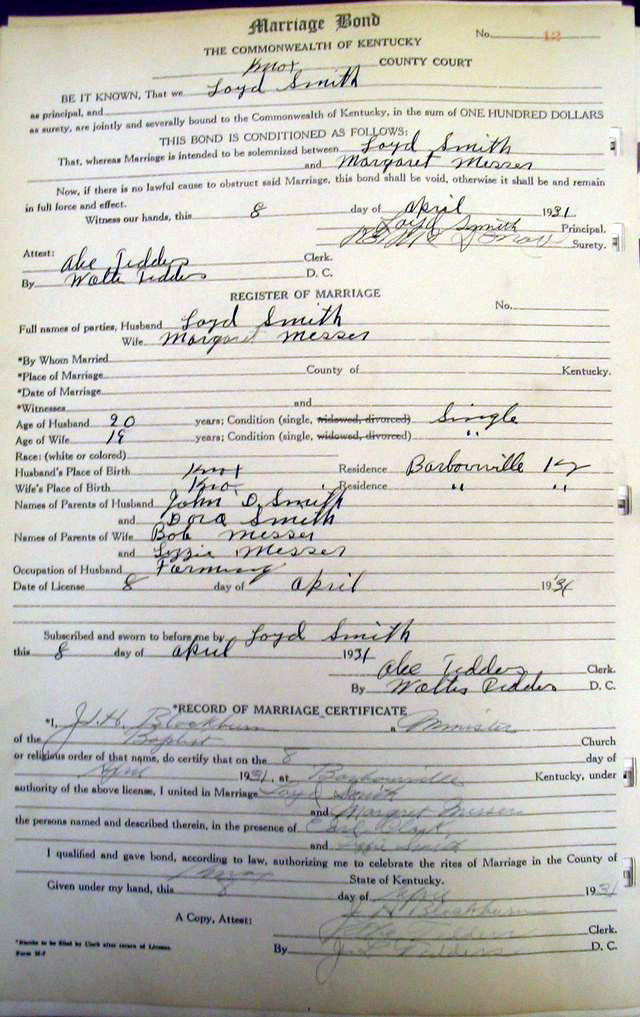 Marriage Bond
No. 12
THE COMMONWEALTH OF KENTUCKY
Knox COUNTY COURT
BE IT KNOWN, That we Loyd Smith
as principal, and
as surety, are jointly and severally bound to the Commonwealth of Kentucky, in the sum of ONE HUNDRED DOLLARS
THIS BOND IS CONDITIONED AS FOLLOWS:
That, whereas Marriage is intended to be solemnized between Loyd Smith
and Margaret Messer
Now, if there is no lawful cause to obstruct said Marriage, this bond shall be void, otherwise it shall be and remain
in full force and effect.
Witness our hands, this 8 day of April 1931
Loyd Smith Principal.
Surety.
Attest:
Abe Tedders Clerk.
By Walter Tedders D. C.
REGISTER OF MARRIAGE
No.
Full names of parties, Husband Loyd Smith
Wife Margaret Messer
*By Whom Married
*Place of Marriage County of Kentucky.
*Date of Marriage
*Witnesses and
Age of Husband 20 years; Condition (single, widowed, divorced) Single
Age of Wife 19 years; Condition (single, widowed, divorced) "
Race: (white or colored)
Husband's Place of Birth Knox Residence Barbourville Ky
Wife's Place of Birth Knox Residence " "
Names of Parents of Husband John D. Smith
and Dora Smith
Names of Parents of Wife Bob Messer
and Lizzie Messer
Occupation of Husband Farming
Date of License 8 day of April 1931
Subscribed and sworn to before me by Loyd Smith
this 8 day of April 1931
Abe Tedders Clerk.
By Walter Tedders D. C.
*RECORD OF MARRIAGE CERTIFICATE
*I, J. H. Blackburn a Minister
of the Baptist Church
or religious order of that name, do certify that on the 8 day of
April 1931, at Barbourville Kentucky, under
authority of the above license, I united in Marriage Loyd Smith
and Margaret Messer
the persons named and described therein, in the presence of Earl Clark,
and Smith
I qualified and gave bond, according to law, authorizing me to celebrate the rites of Marriage in the County of
Knox State of Kentucky.
Given under my hand, this 8 day of April 1931
J H Blackburn
A Copy, Attest: Abe Tedders Clerk.
By Tedders D. C.
*Blanks to be filled by Clerk after return of License.
Form M-F